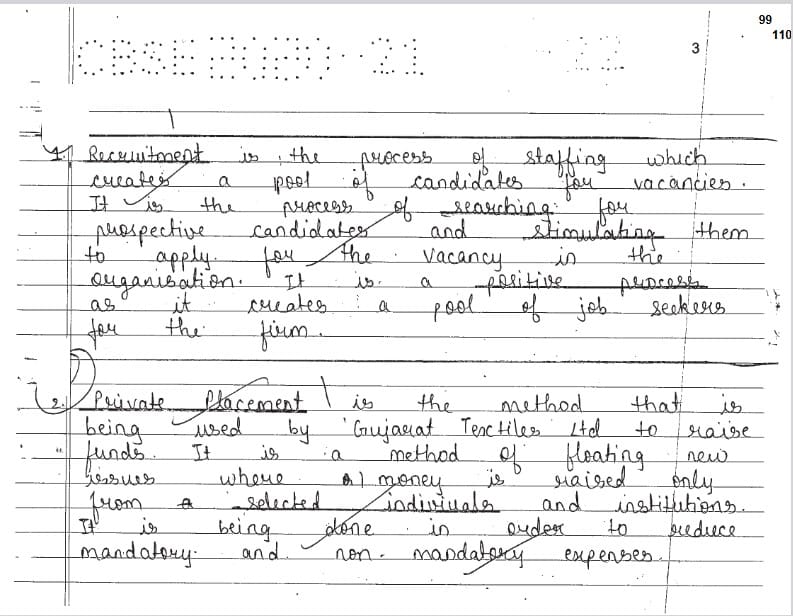 99
110
3
CBSE
1
1. Recruitment is the process of staffing which
creates a pool of candidates for vacancies.
It is the process of searching for
prospective candidates and stimulating them
to apply for the vacancy in the
organisation. It is a positive process
as it creates a pool of job seekers
for the firm.
2. Private Placement 1 is the method that is
being used by 'Gujarat Textiles Ltd to raise
funds. It is a method of floating new
issues where money is raised only
from a selected indiviuals and institutions.
It is being done in order to reduce
mandatory and non-mandatory expenses.